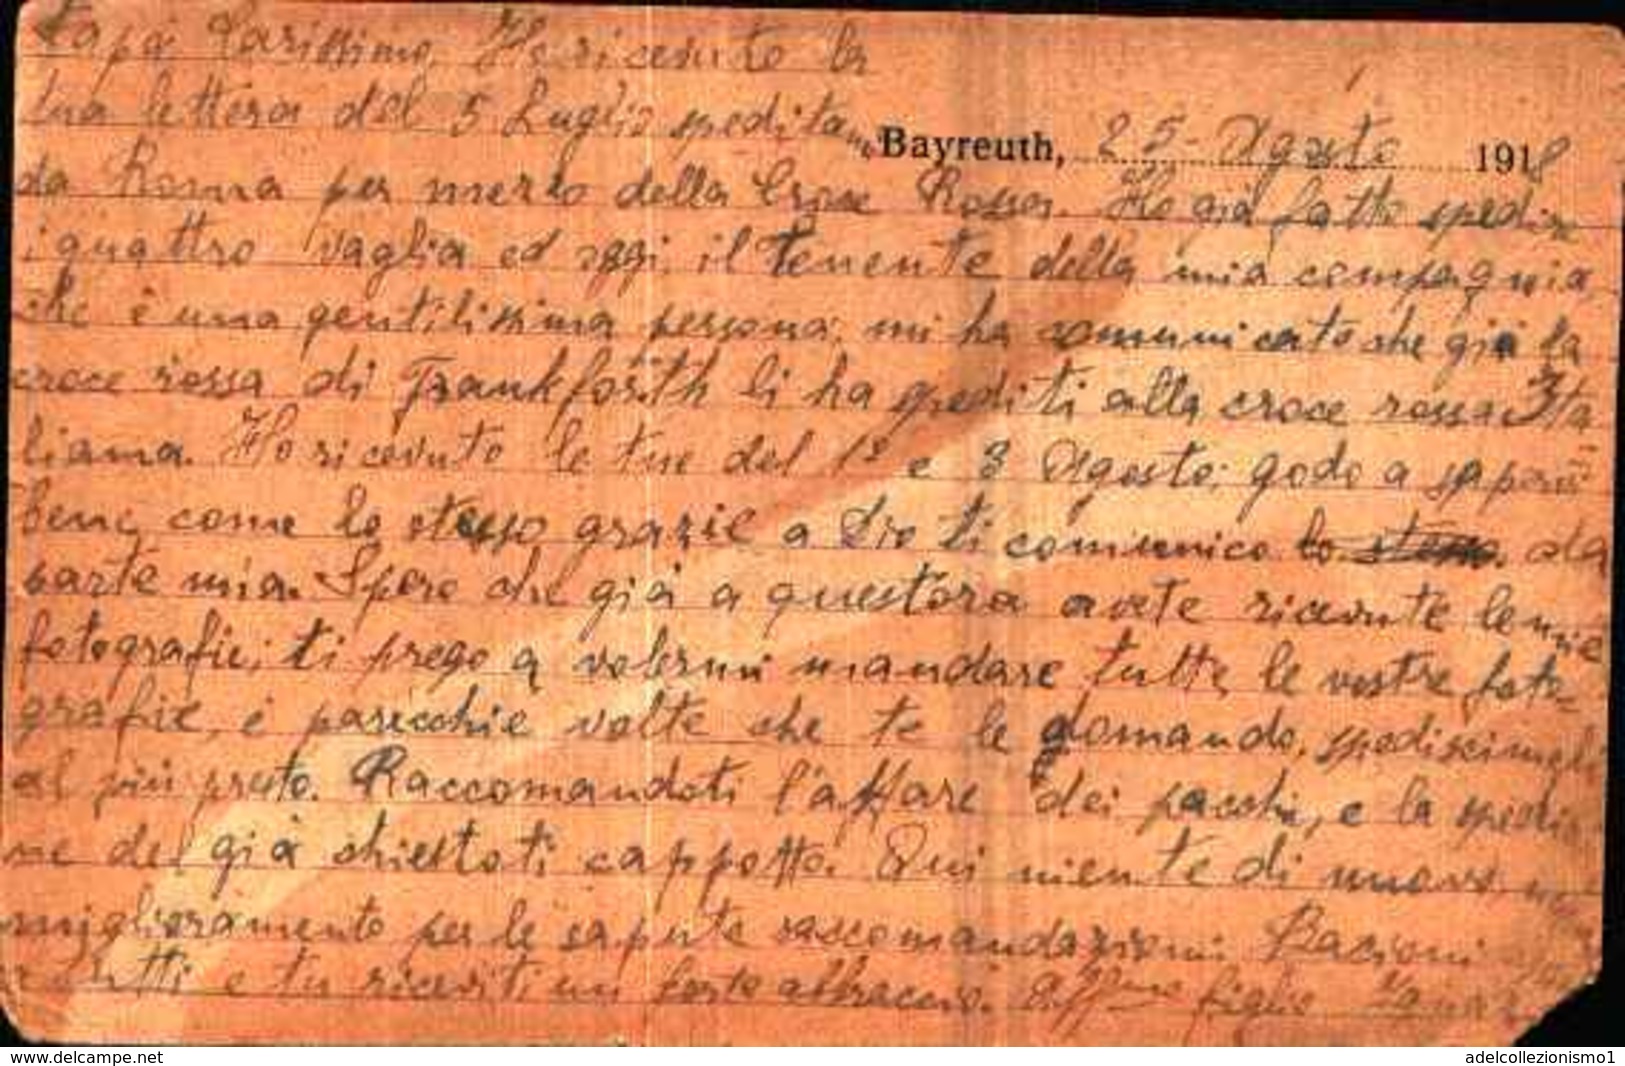 Papà Carissimo, Ho ricevuto la
tua lettera del 5 Luglio speditami
Bayreuth, 25 - Agosto 1918
da Roma per mezzo della Croce Rossa. Ho già fatto spedire
i quattro vaglia ed oggi, il tenente della mia compagnia
che è una gentilissima persona, mi ha comunicato che già la
croce rossa di Frankforth li ha spediti alla croce rossa Ita-
liana. Ho ricevuto le tue del 1° e 3 Agosto; godo a saperti
bene, come lo stesso grazie a Dio ti comunico lo stesso. da
parte mia. Spero che già a quest'ora avete ricevute le mie
fotografie; ti prego a volermi mandare tutte le vostre foto-
grafie, è parecchie volte che te le domando, spediscimeli
al più presto. Raccomandoti l'affare dei pacchi, e la spedizio
ne del già chiestoti cappotto. Qui niente di nuovo
miglioramento per le sapute raccomandazioni. Bacioni
tutti e tu riceviti un forte abbraccio. Aff.mo figlio
adelcollezionismo1
www.delcampe.net